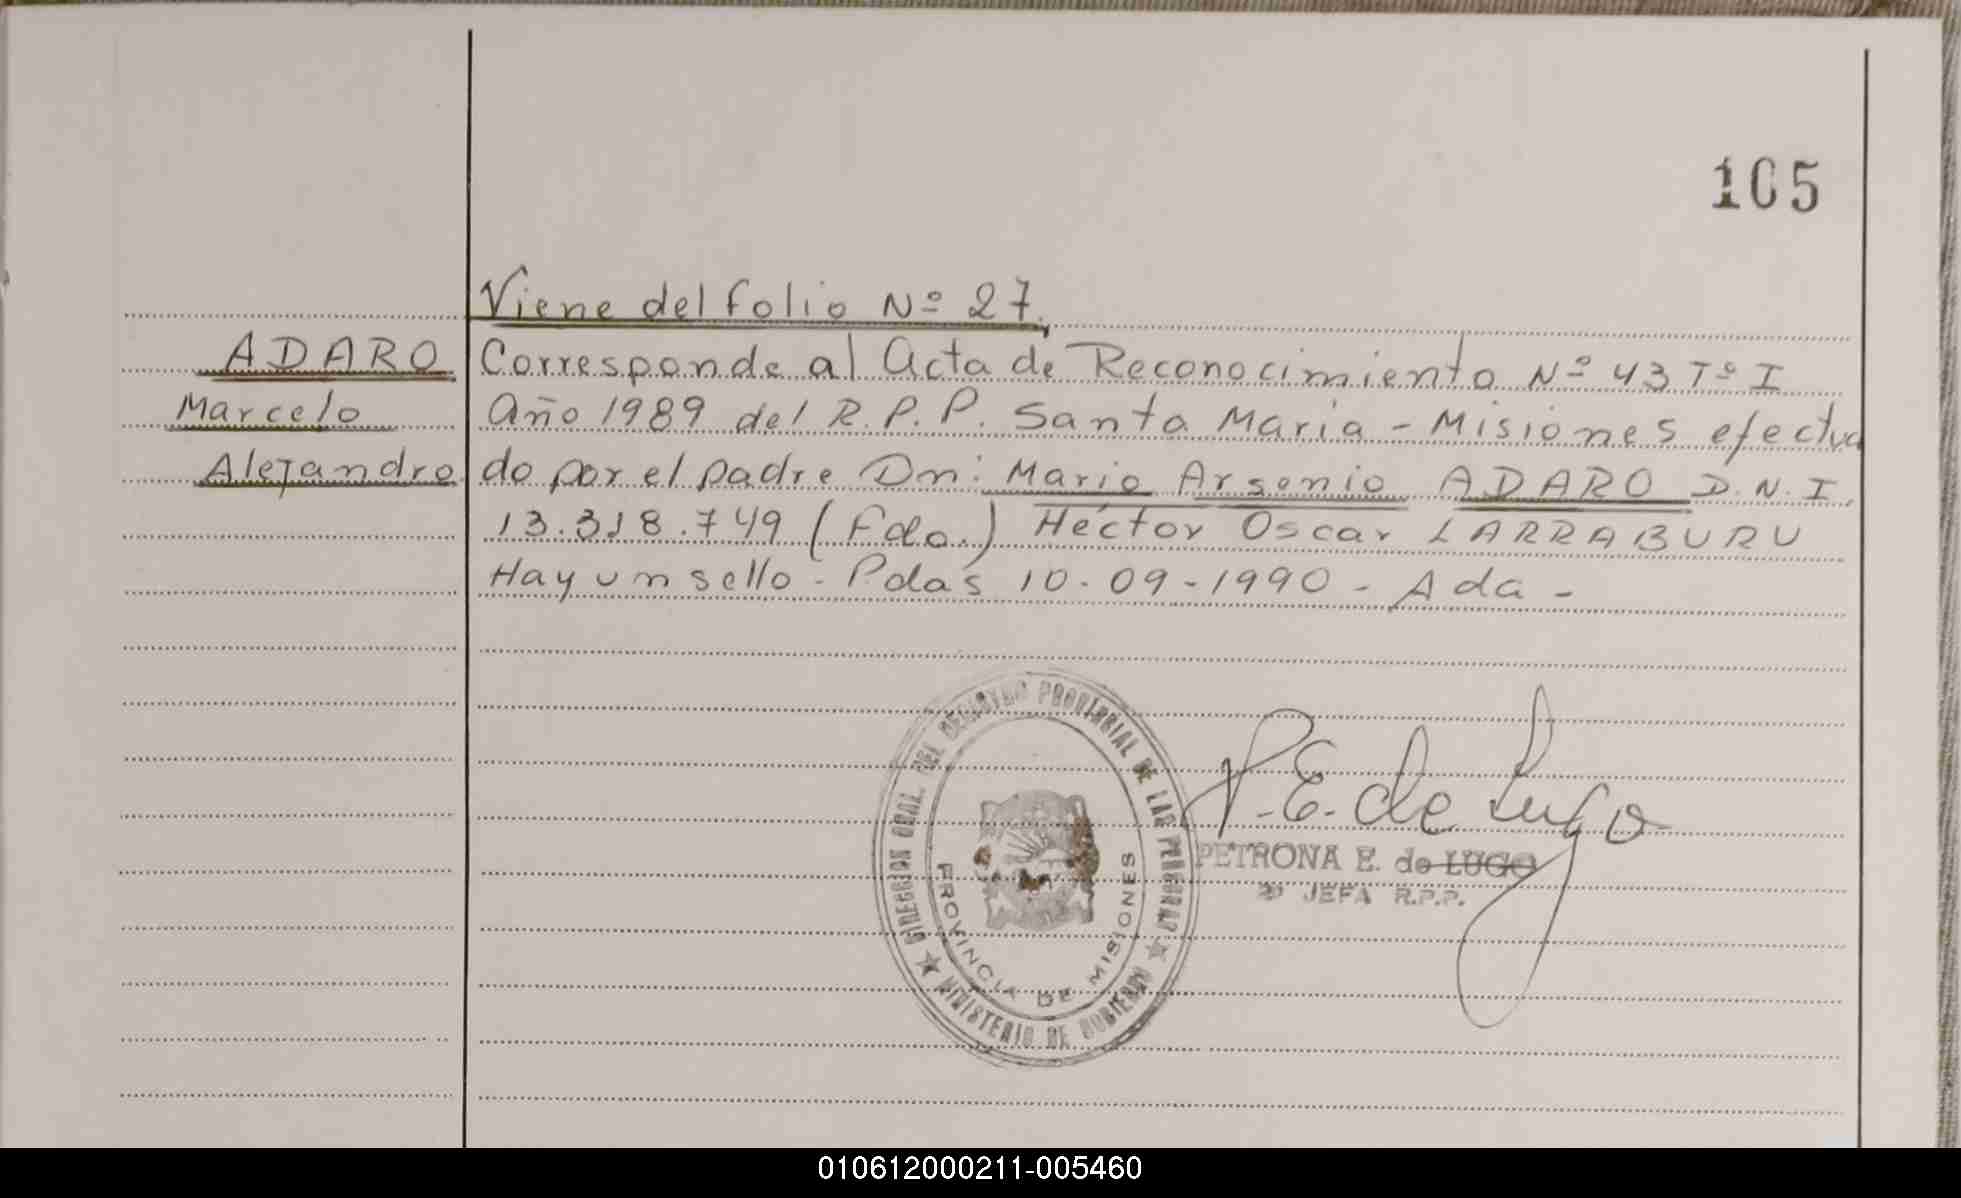 105
Viene del folio Nº 27.
ADARO
Marcelo
Alejandro
Corresponde al Acta de Reconocimiento Nº 43 Tº I
Año 1989 del R.P.P. Santa María - Misiones efectua
do por el padre Dn: Mario Arsenio ADARO D.N.I.
13.318.749 (Fdo.) Héctor Oscar LARRABURU
Hay un sello - Pdas 10-09-1990 - Ada -
DIRECCION GRAL. DEL REGISTRO PROVINCIAL DE LAS PERSONAS
MINISTERIO DE GOBIERNO
PROVINCIA DE MISIONES
P.E. de Lugo
PETRONA E. de LUGO
JEFA R.P.P.
010612000211-005460